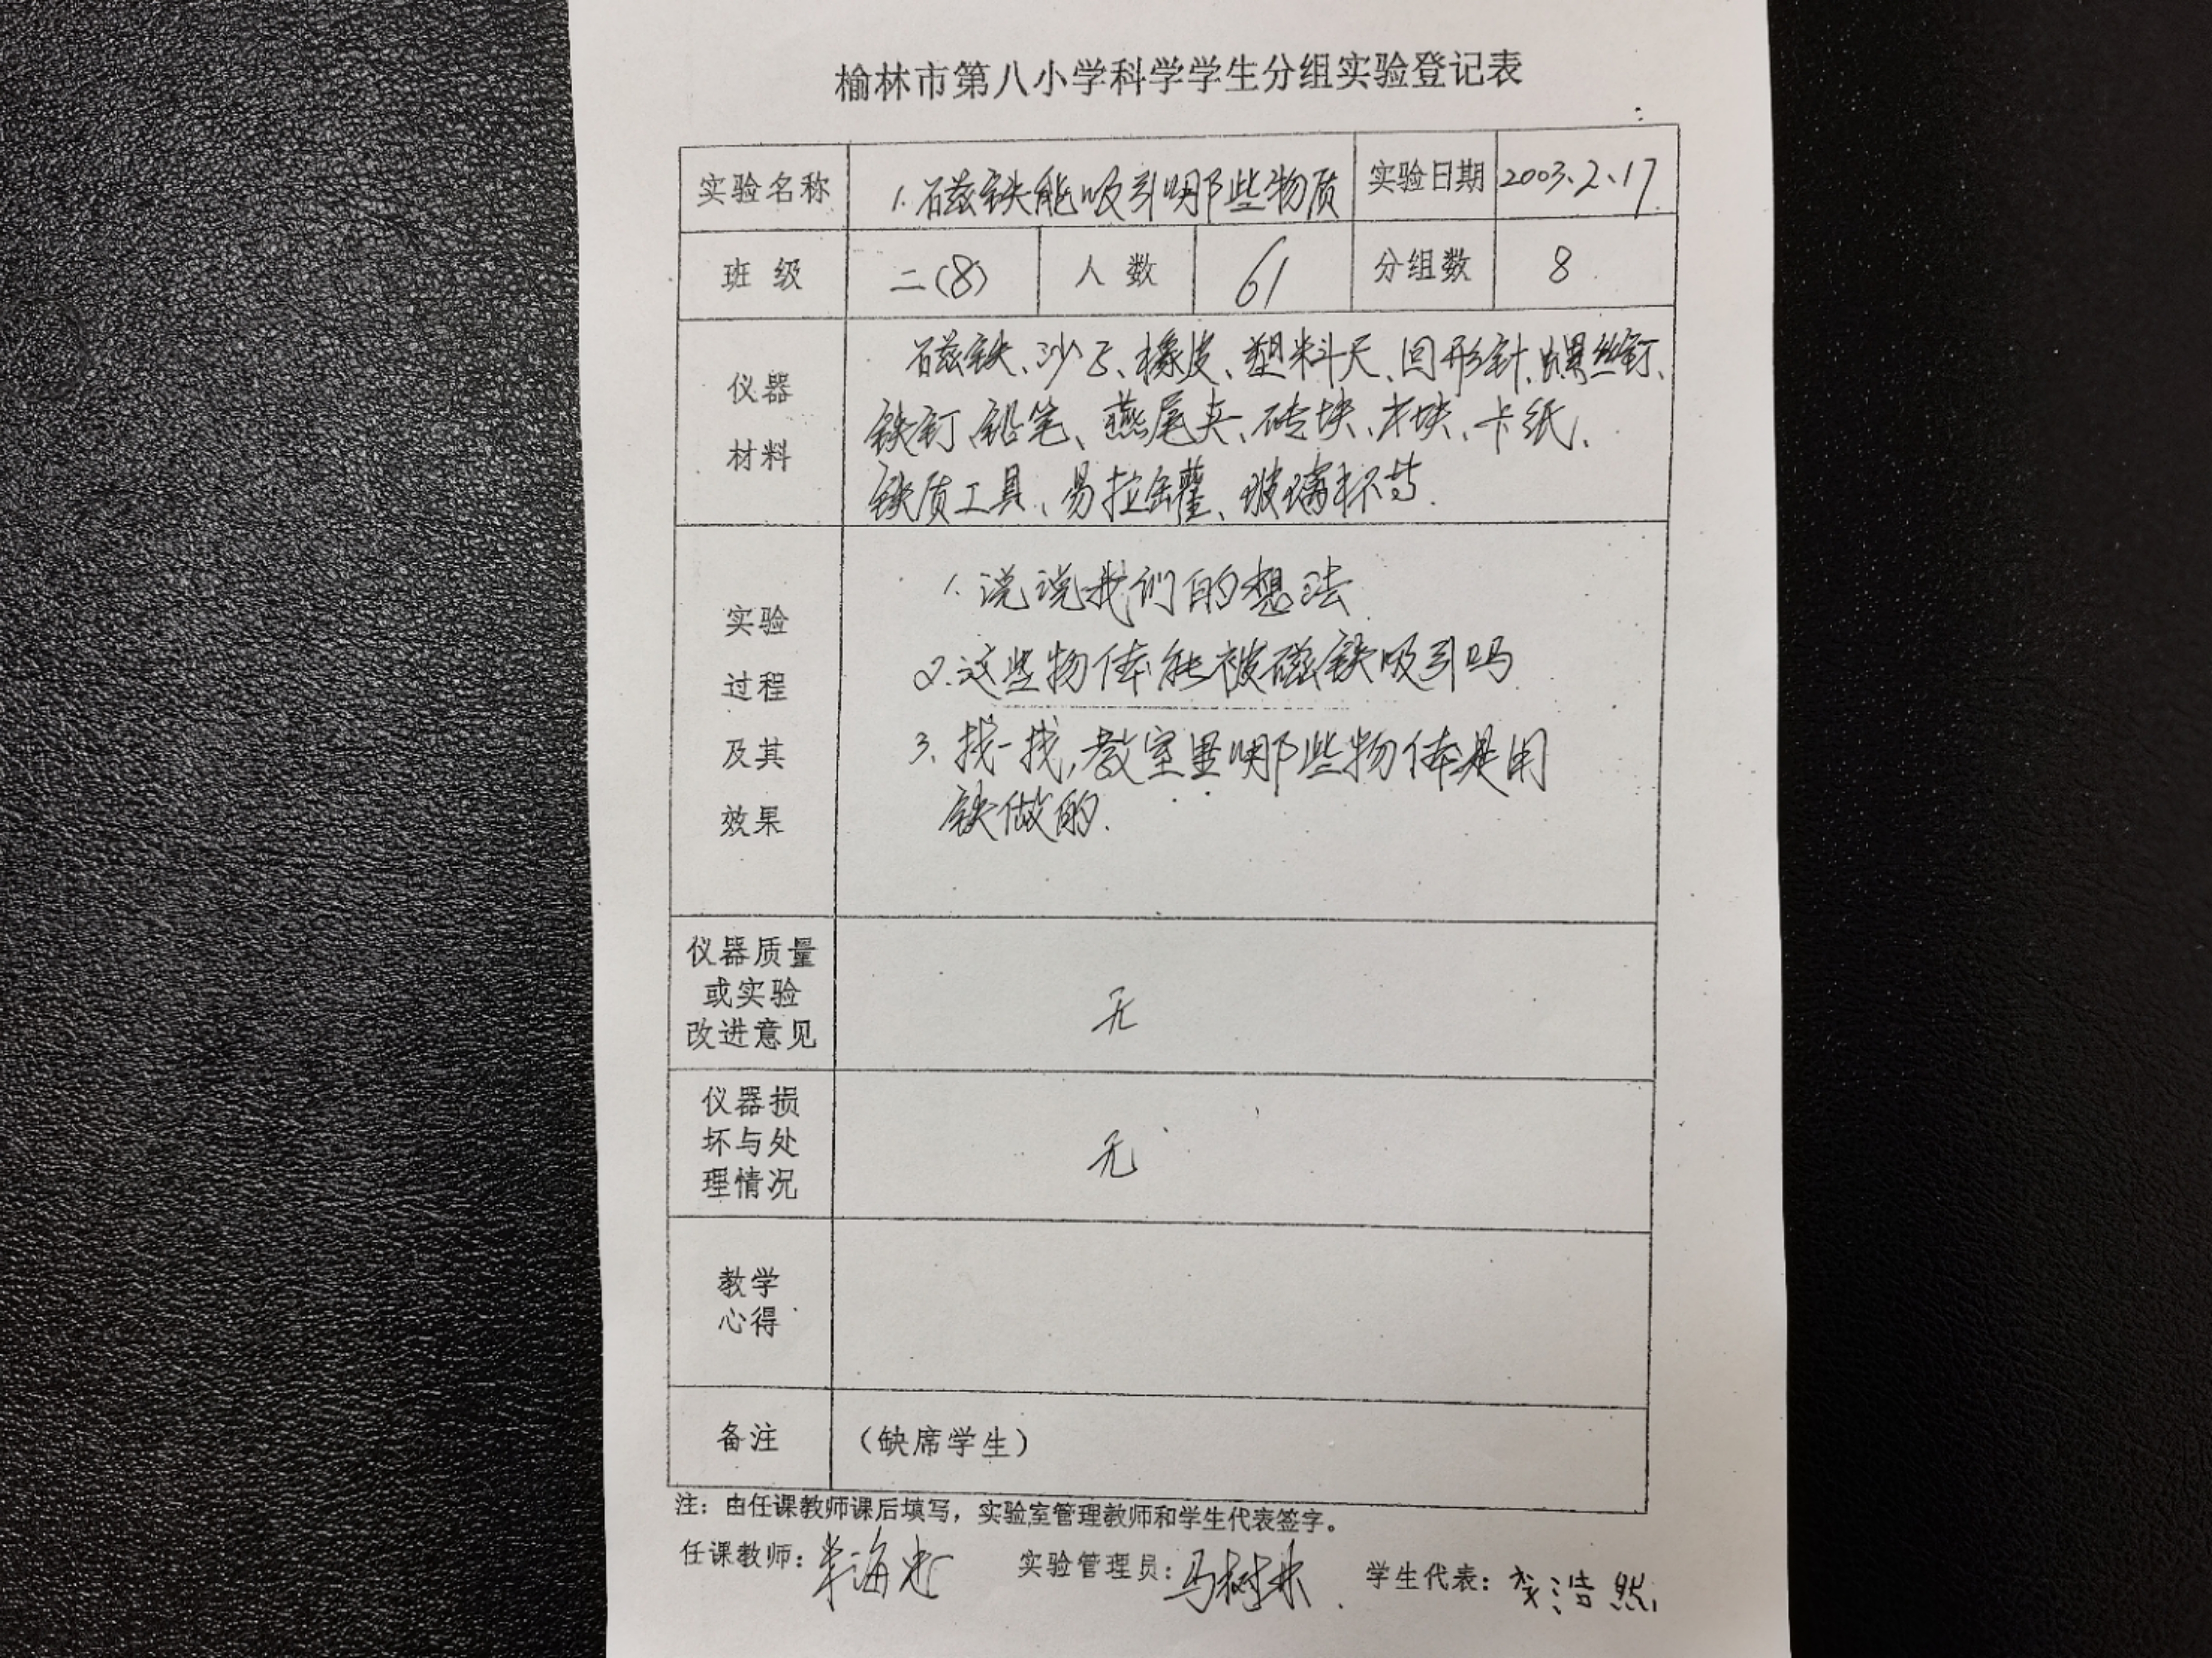 榆林市第八小学科学学生分组实验登记表
实验名称 1.磁铁能吸引哪些物质 实验日期 2003.2.17
班级 二(8) 人数 61 分组数 8
仪器
材料
磁铁、沙子、橡皮、塑料尺、回形针、螺丝钉、
铁钉、铅笔、燕尾夹、砖块、木块、卡纸、
铁质工具、易拉罐、玻璃杯等.
实验
过程
及其
效果
1.说说我们的想法
2.这些物体能被磁铁吸引吗
3.找一找,教室里哪些物体是用
铁做的.
仪器质量
或实验
改进意见
无
仪器损
坏与处
理情况
无
教学
心得
备注 （缺席学生）
注：由任课教师课后填写，实验室管理教师和学生代表签字。
任课教师： 实验管理员：马树林 学生代表：李浩然